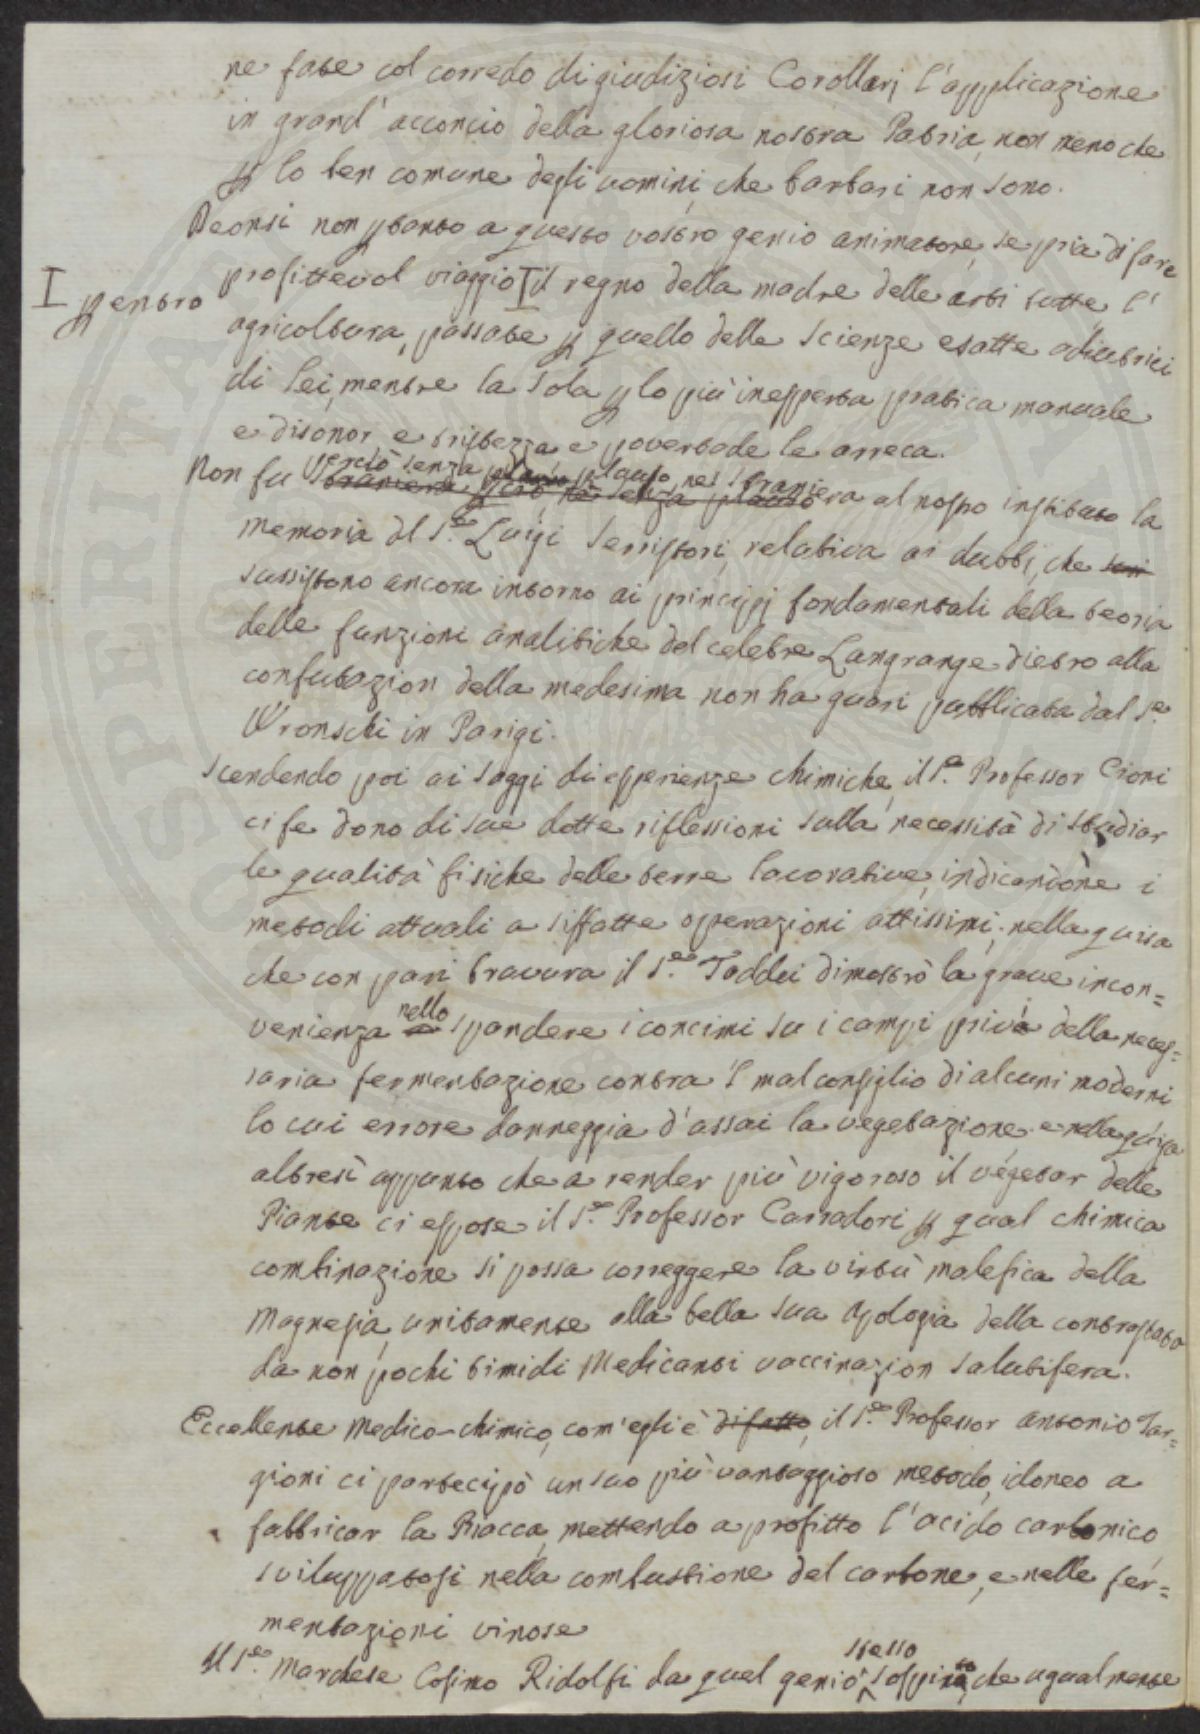 ne fate col corredo di giudiziosi Corollarj l'applicazione
in grand' acconcio della gloriosa nostra Patria, non meno che
p lo ben comune degli uomini, che barbari non sono.
Deonsi non ptanto a questo vostro genio animatore, se pria di fare
profittevol viaggio I il regno della madre delle arti tutte l'
I p entro
agricoltura, passate p quello delle scienze esatte adiutrici
di lei, mentre la sola p lo più inesperta pratica manuale
e disonor, e tristezza e povertade le arreca.
perciò senza plauso, nel
Non fu straniera al nostro instituto la
memoria del S.e Luigi Serristori, relativa ai dubbi, che
sussistono ancora intorno ai principj fondamentali della teoria
delle funzioni analitiche del celebre Langrange dietro alla
confutazion della medesima non ha guari pubblicata dal S.e
Wronschi in Parigi.
Scendendo poi ai saggi di esperienze chimiche, il S.e Professor Cioni
ci fe dono di sue dotte riflessioni sulla necessità di studiar
le qualità fisiche delle terre lavorative, indicandone i
metodi attuali a siffatte operazioni attissimi; nella guisa
che con pari bravura il S.e Taddei dimostrò la grave incon=
nello
venienza spandere i concimi su i campi privi della neces=
saria fermentazione contra 'l mal consiglio di alcuni moderni
lo cui errore danneggia d'assai la vegetazione. e nella guisa
altresì appunto che a render più vigoroso il vegetar delle
Piante ci espose il S.e Professor Carradori p qual chimica
combinazione si possa correggere la virtù malefica della
Magnesia, unitamente alla bella sua Apologia della contrastata
da non pochi timidi Medicanti vaccinazion salutifera.
Eccellente Medico-chimico, com' egli è difatto, il S.e Professor Antonio Tar=
gioni ci partecipò un suo più vantaggioso metodo, idoneo a
fabbricar la Biacca, mettendo a profitto l'acido carbonico
sviluppatosi nella combustione del carbone, e nelle fer=
mentazioni vinose
stesso
Il S.e Marchese Cosimo Ridolfi da quel genio sospinto, che ugualmente